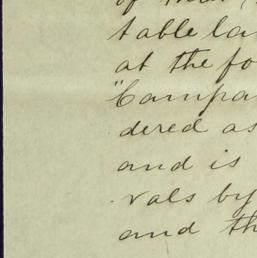 of
table la
at the fo
"Campa
dered as
and is
vals by
and th